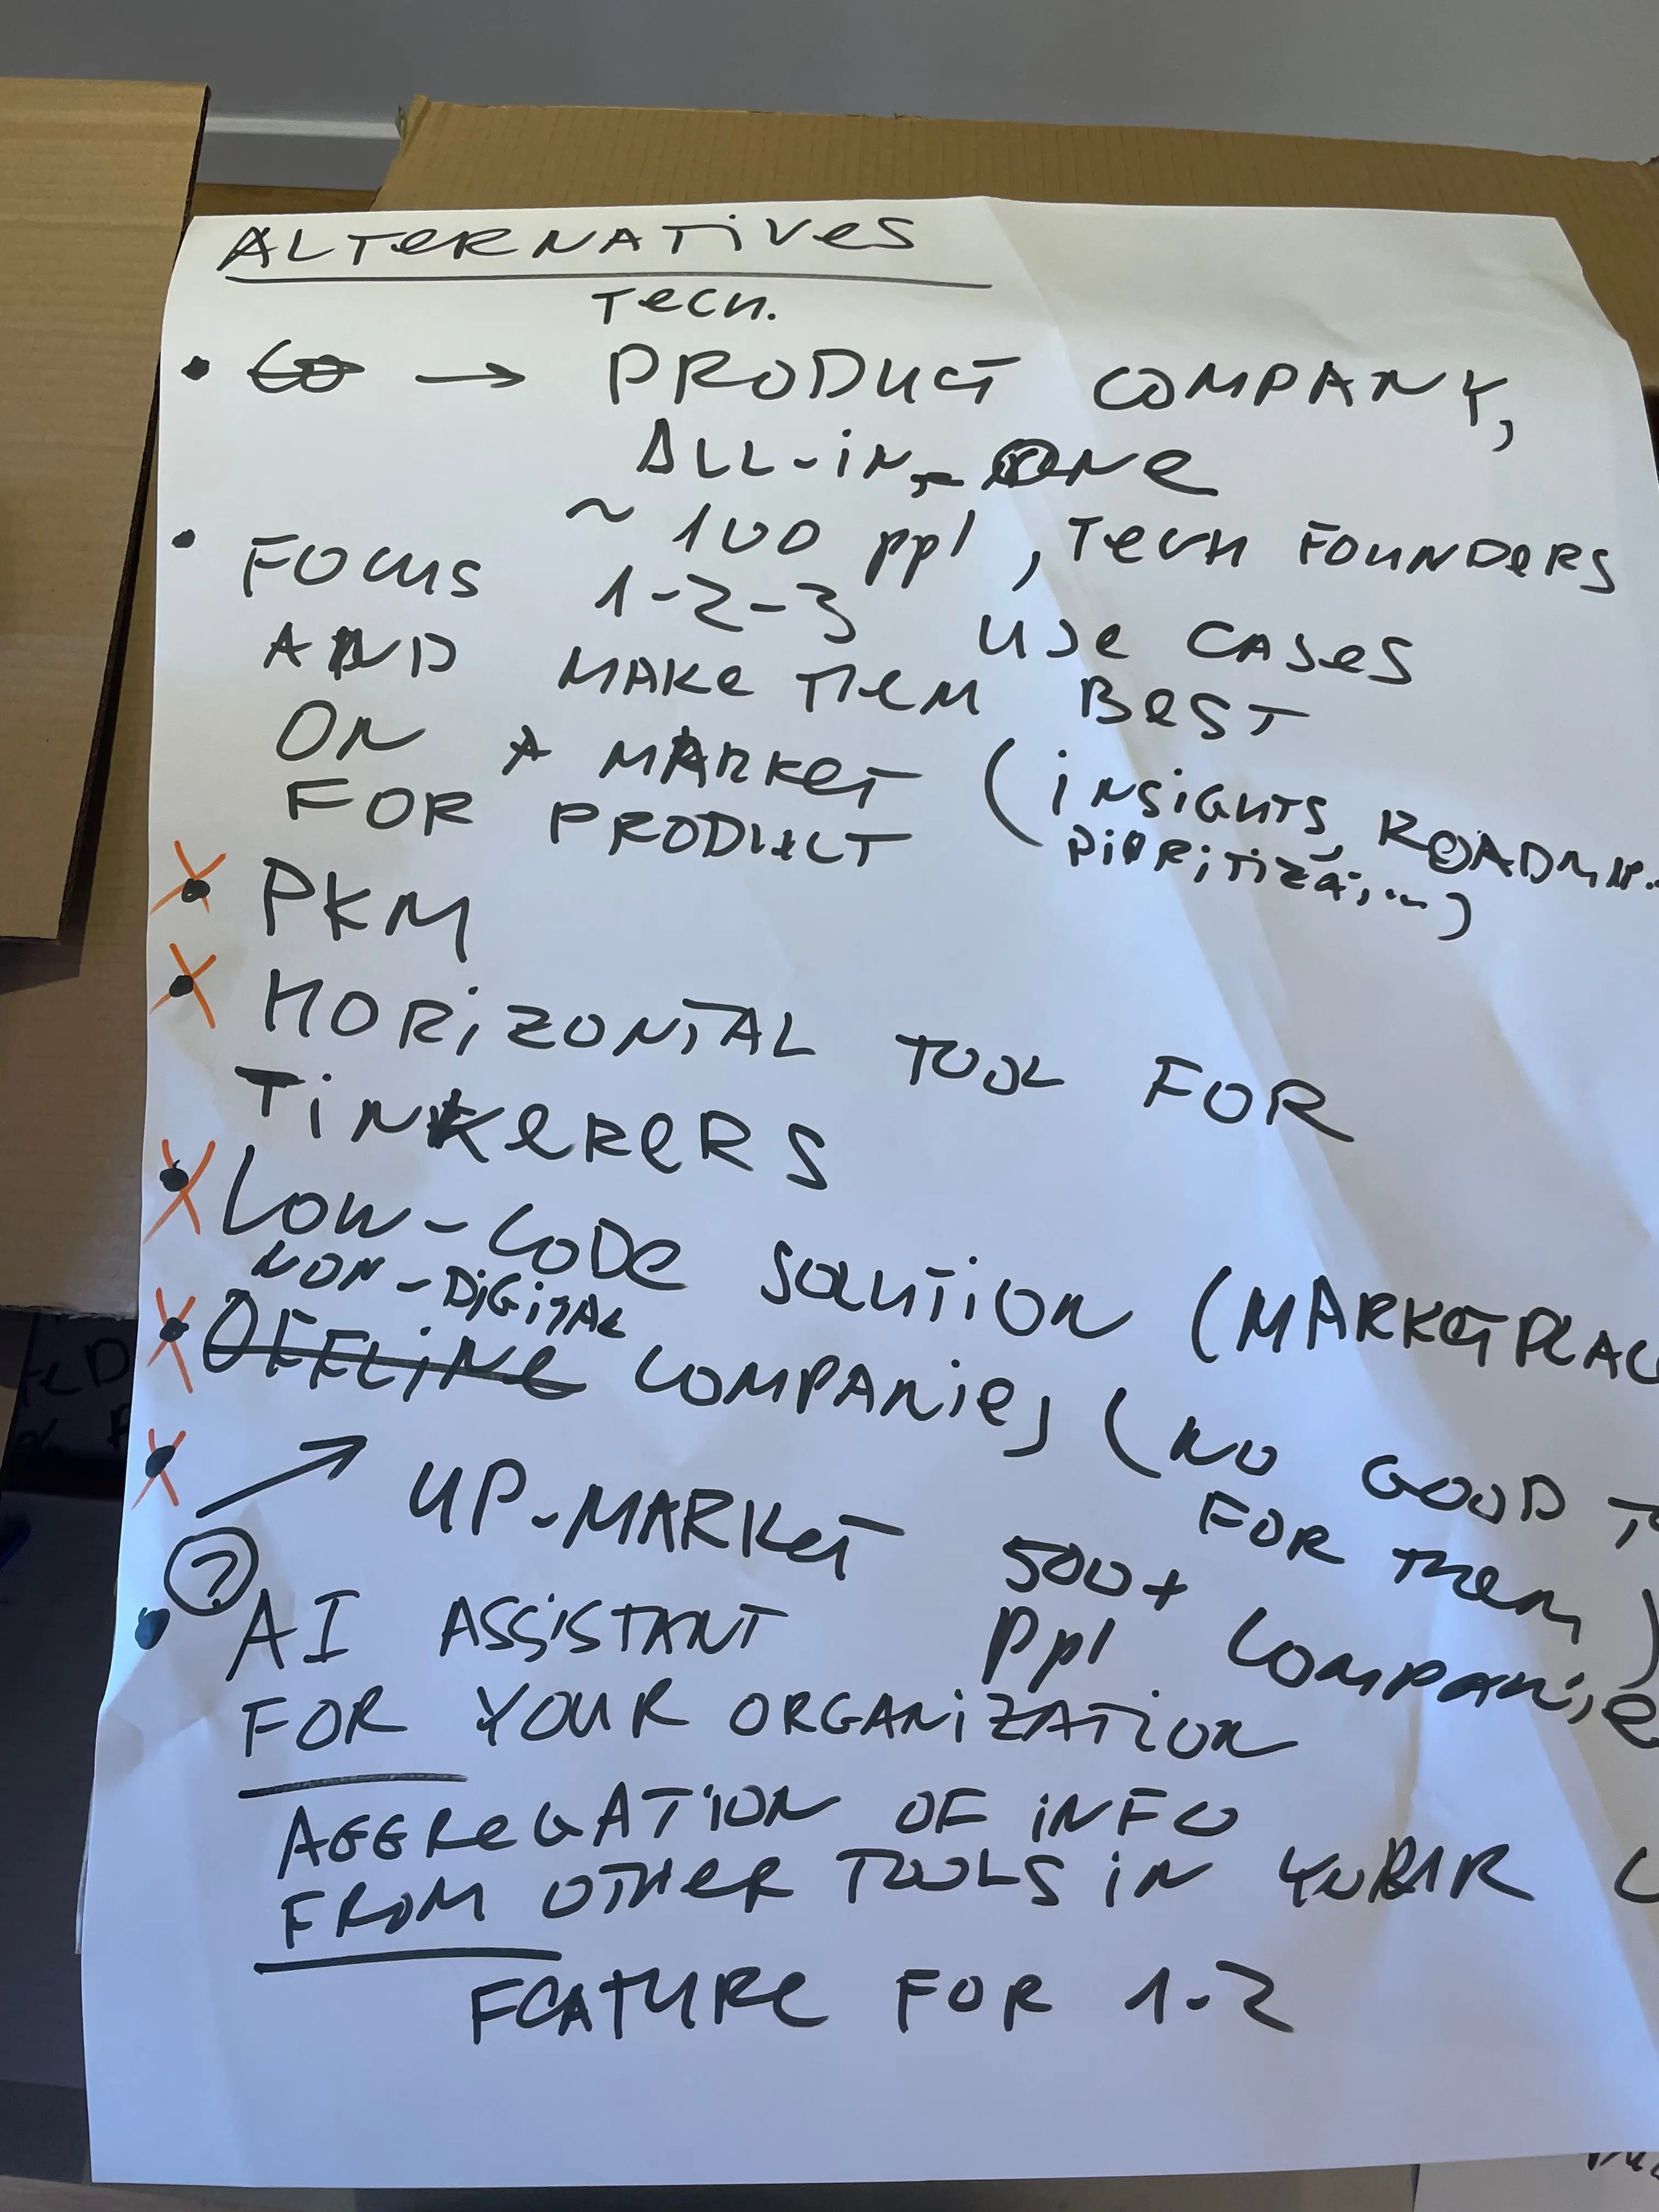 ALTERNATIVES
TECH.
• → PRODUCT COMPANY,
ALL-IN-ONE
~ 100 ppl, TECH FOUNDERS
• FOCUS 1-2-3 USE CASES
AND MAKE THEM BEST
ON A MARKET (INSIGHTS, ROADMAP.
FOR PRODUCT PIORITIZA, ...)
• PKM
• HORIZONTAL TOOL FOR
TINKERERS
• LOW-CODE SOLUTION (MARKETPLAC
NON-DIGITAL
• OFFLINE COMPANIES (NO GOOD T
FOR THEM)
• → UP-MARKET 500+
ppl COMPANIE
?
• AI ASSISTANT
FOR YOUR ORGANIZATION
AGGREGATION OF INFO
FROM OTHER TOOLS IN
FEATURE FOR 1-2